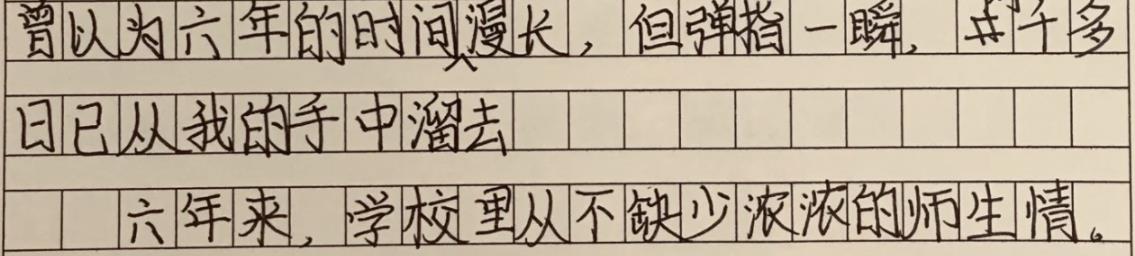 曾以为六年的时间漫长，但弹指一瞬，千多
日已从我的手中溜去
六年来，学校里从不缺少浓浓的师生情。